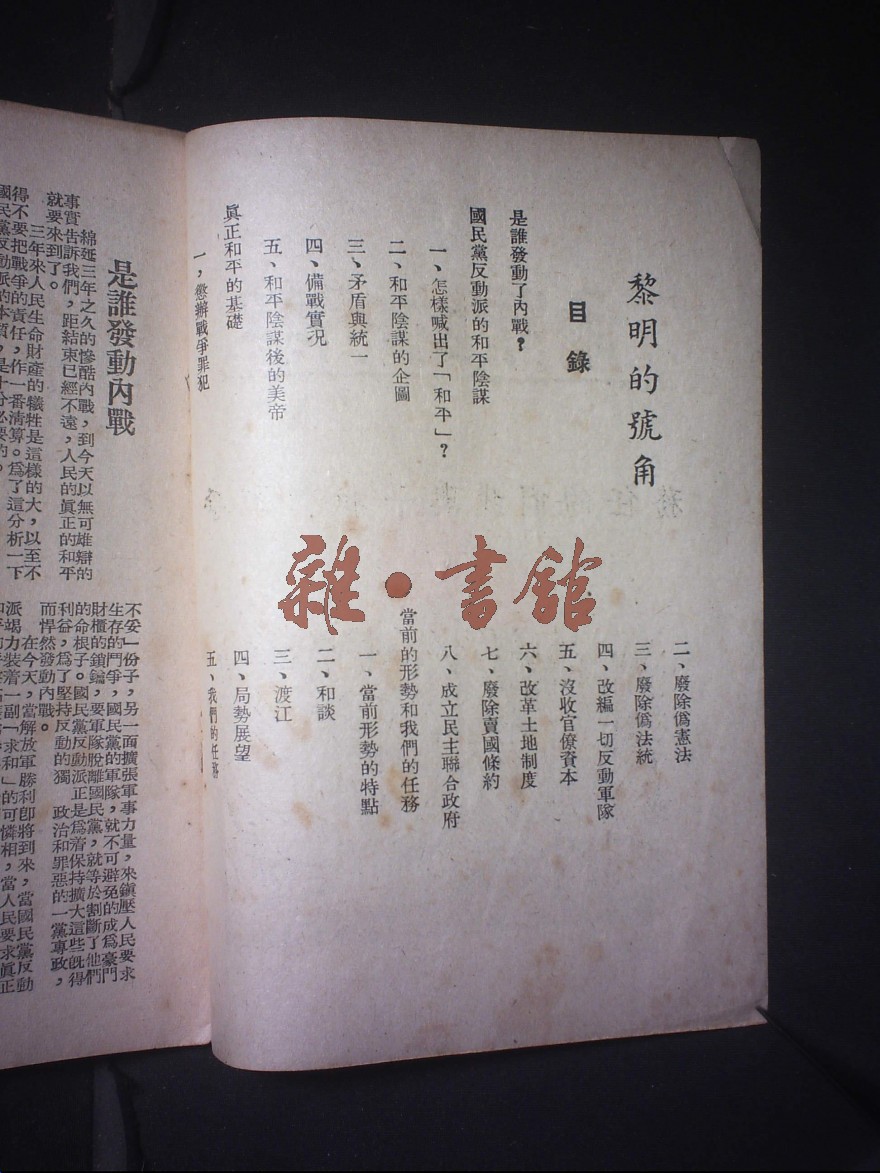 黎明的號角
目錄
是誰發動了內戰？
國民黨反動派的和平陰謀
一、怎樣喊出了「和平」？
二、和平陰謀的企圖
三、矛盾與統一
四、備戰實況
五、和平陰謀後的美帝
眞正和平的基礎
一，懲辦戰爭罪犯
二、廢除僞憲法
三、廢除僞法統
四、改編一切反動軍隊
五、沒收官僚資本
六、改革土地制度
七、廢除賣國條約
八、成立民主聯合政府
當前的形勢和我們的任務
一、當前形勢的特點
二、和談
三、渡江
四、局勢展望
五、我們的任務
雜・書館
是誰發動內戰
綿延三年之久的慘酷內戰，到今天以無可雄辯的
事實告訴我們，距結束已經不遠，人民的眞正的和平
就要來到了。
三年來人民生命財產的犧牲是這樣的大，以至不
得不要把戰爭的責任，作一番淸算。爲了這分析一下
國民黨反動派的本質，是十分必要的。
不妥」份子，另一面擴張軍事力量，來鎭壓人民要求
生存的鬥爭，國民黨的軍隊，就不可避免的成爲豪門
財櫃的鎖鑰，要軍隊脫離國民黨，就等於割斷了他們
的命根子。國民黨反動派正是爲着保持擴大這些旣得
利益，爲了堅持反動的獨 政治和罪惡的一黨專政，
而悍然發動內戰。
在今天，當解放軍勝利卽將到來，當國民黨反動
派竭力装着一副「求和」的可憐相，當人民要求眞正